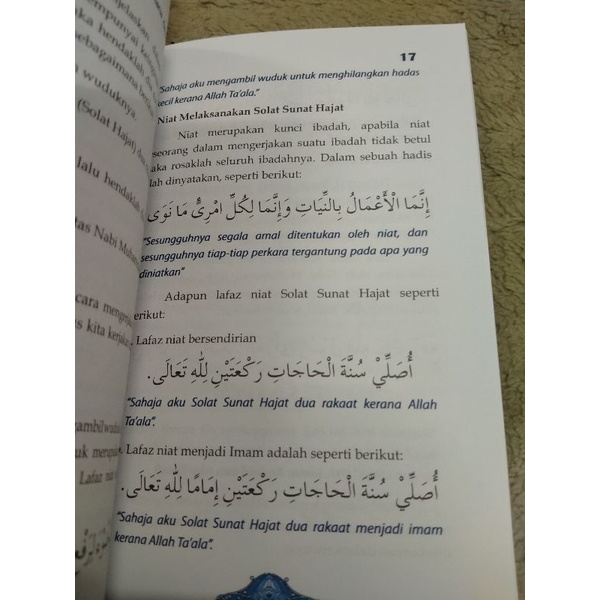 17
"Sahaja aku mengambil wuduk untuk menghilangkan hadas
kecil kerana Allah Ta'ala."
Niat Melaksanakan Solat Sunat Hajat
Niat merupakan kunci ibadah, apabila niat
seorang dalam mengerjakan suatu ibadah tidak betul
aka rosaklah seluruh ibadahnya. Dalam sebuah hadis
lah dinyatakan, seperti berikut:
إِنَّمَا الْأَعْمَالُ بِالنِّيَاتِ وَإِنَّمَا لِكُلِّ امْرِئٍ مَا نَوَى
"Sesungguhnya segala amal ditentukan oleh niat, dan
sesungguhnya tiap-tiap perkara tergantung pada apa yang
diniatkan"
Adapun lafaz niat Solat Sunat Hajat seperti
erikut:
. Lafaz niat bersendirian
أُصَلِّيْ سُنَّةَ الْحَاجَاتِ رَكْعَتَيْنِ لِلّٰهِ تَعَالَى.
"Sahaja aku Solat Sunat Hajat dua rakaat kerana Allah
Ta'ala".
. Lafaz niat menjadi Imam adalah seperti berikut:
أُصَلِّيْ سُنَّةَ الْحَاجَاتِ رَكْعَتَيْنِ إِمَامًا لِلّٰهِ تَعَالَى.
"Sahaja aku Solat Sunat Hajat dua rakaat menjadi imam
kerana Allah Ta'ala".
enjelaskan
empunyai
aka hendaklah
sebagaimana
wuduknya.
(Solat Hajat)
lalu hendaklah
tas Nabi
cara
s kita
ngambil wuduk
Lafaz